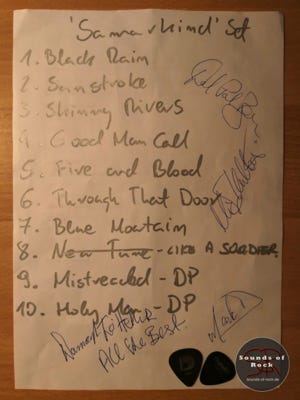 'Samarkind' Set
1. Black Rain
2. Sunstroke
3. Skinny Rivers
4. Good Man Call
5. Fire and Blood
6. Through That Door
7. Blue Mountain
8. New Tune - LIKE A SOLDIER
9. Mistreated - DP
10. Holy Man - DP
All the Best
Sounds of Rock
sounds-of-rock.de